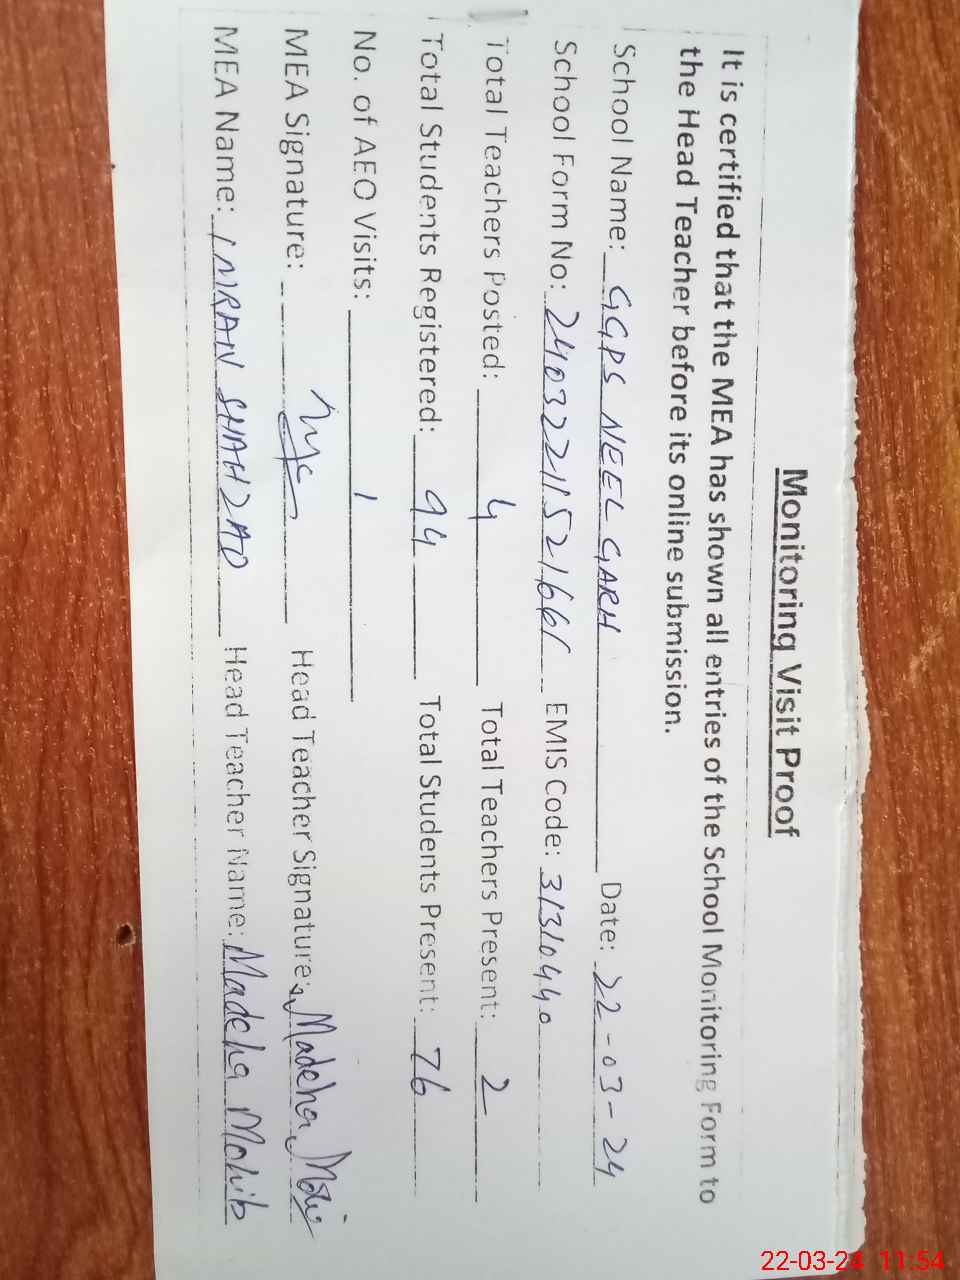 Monitoring Visit Proof
It is certified that the MEA has shown all entries of the School Monitoring Form to
the Head Teacher before its online submission.
School Name: GGPS NEEL GARH Date: 22-03-24
School Form No: 2403221521661 EMIS Code: 31310440
Total Teachers Posted: 4 Total Teachers Present: 2
Total Students Registered: 94 Total Students Present: 76
No. of AEO Visits: 1
MEA Signature: Head Teacher Signature: Madeha
MEA Name: IMRAN SHAHZAD Head Teacher Name: Madeha Mohib
22-03-24 11:54